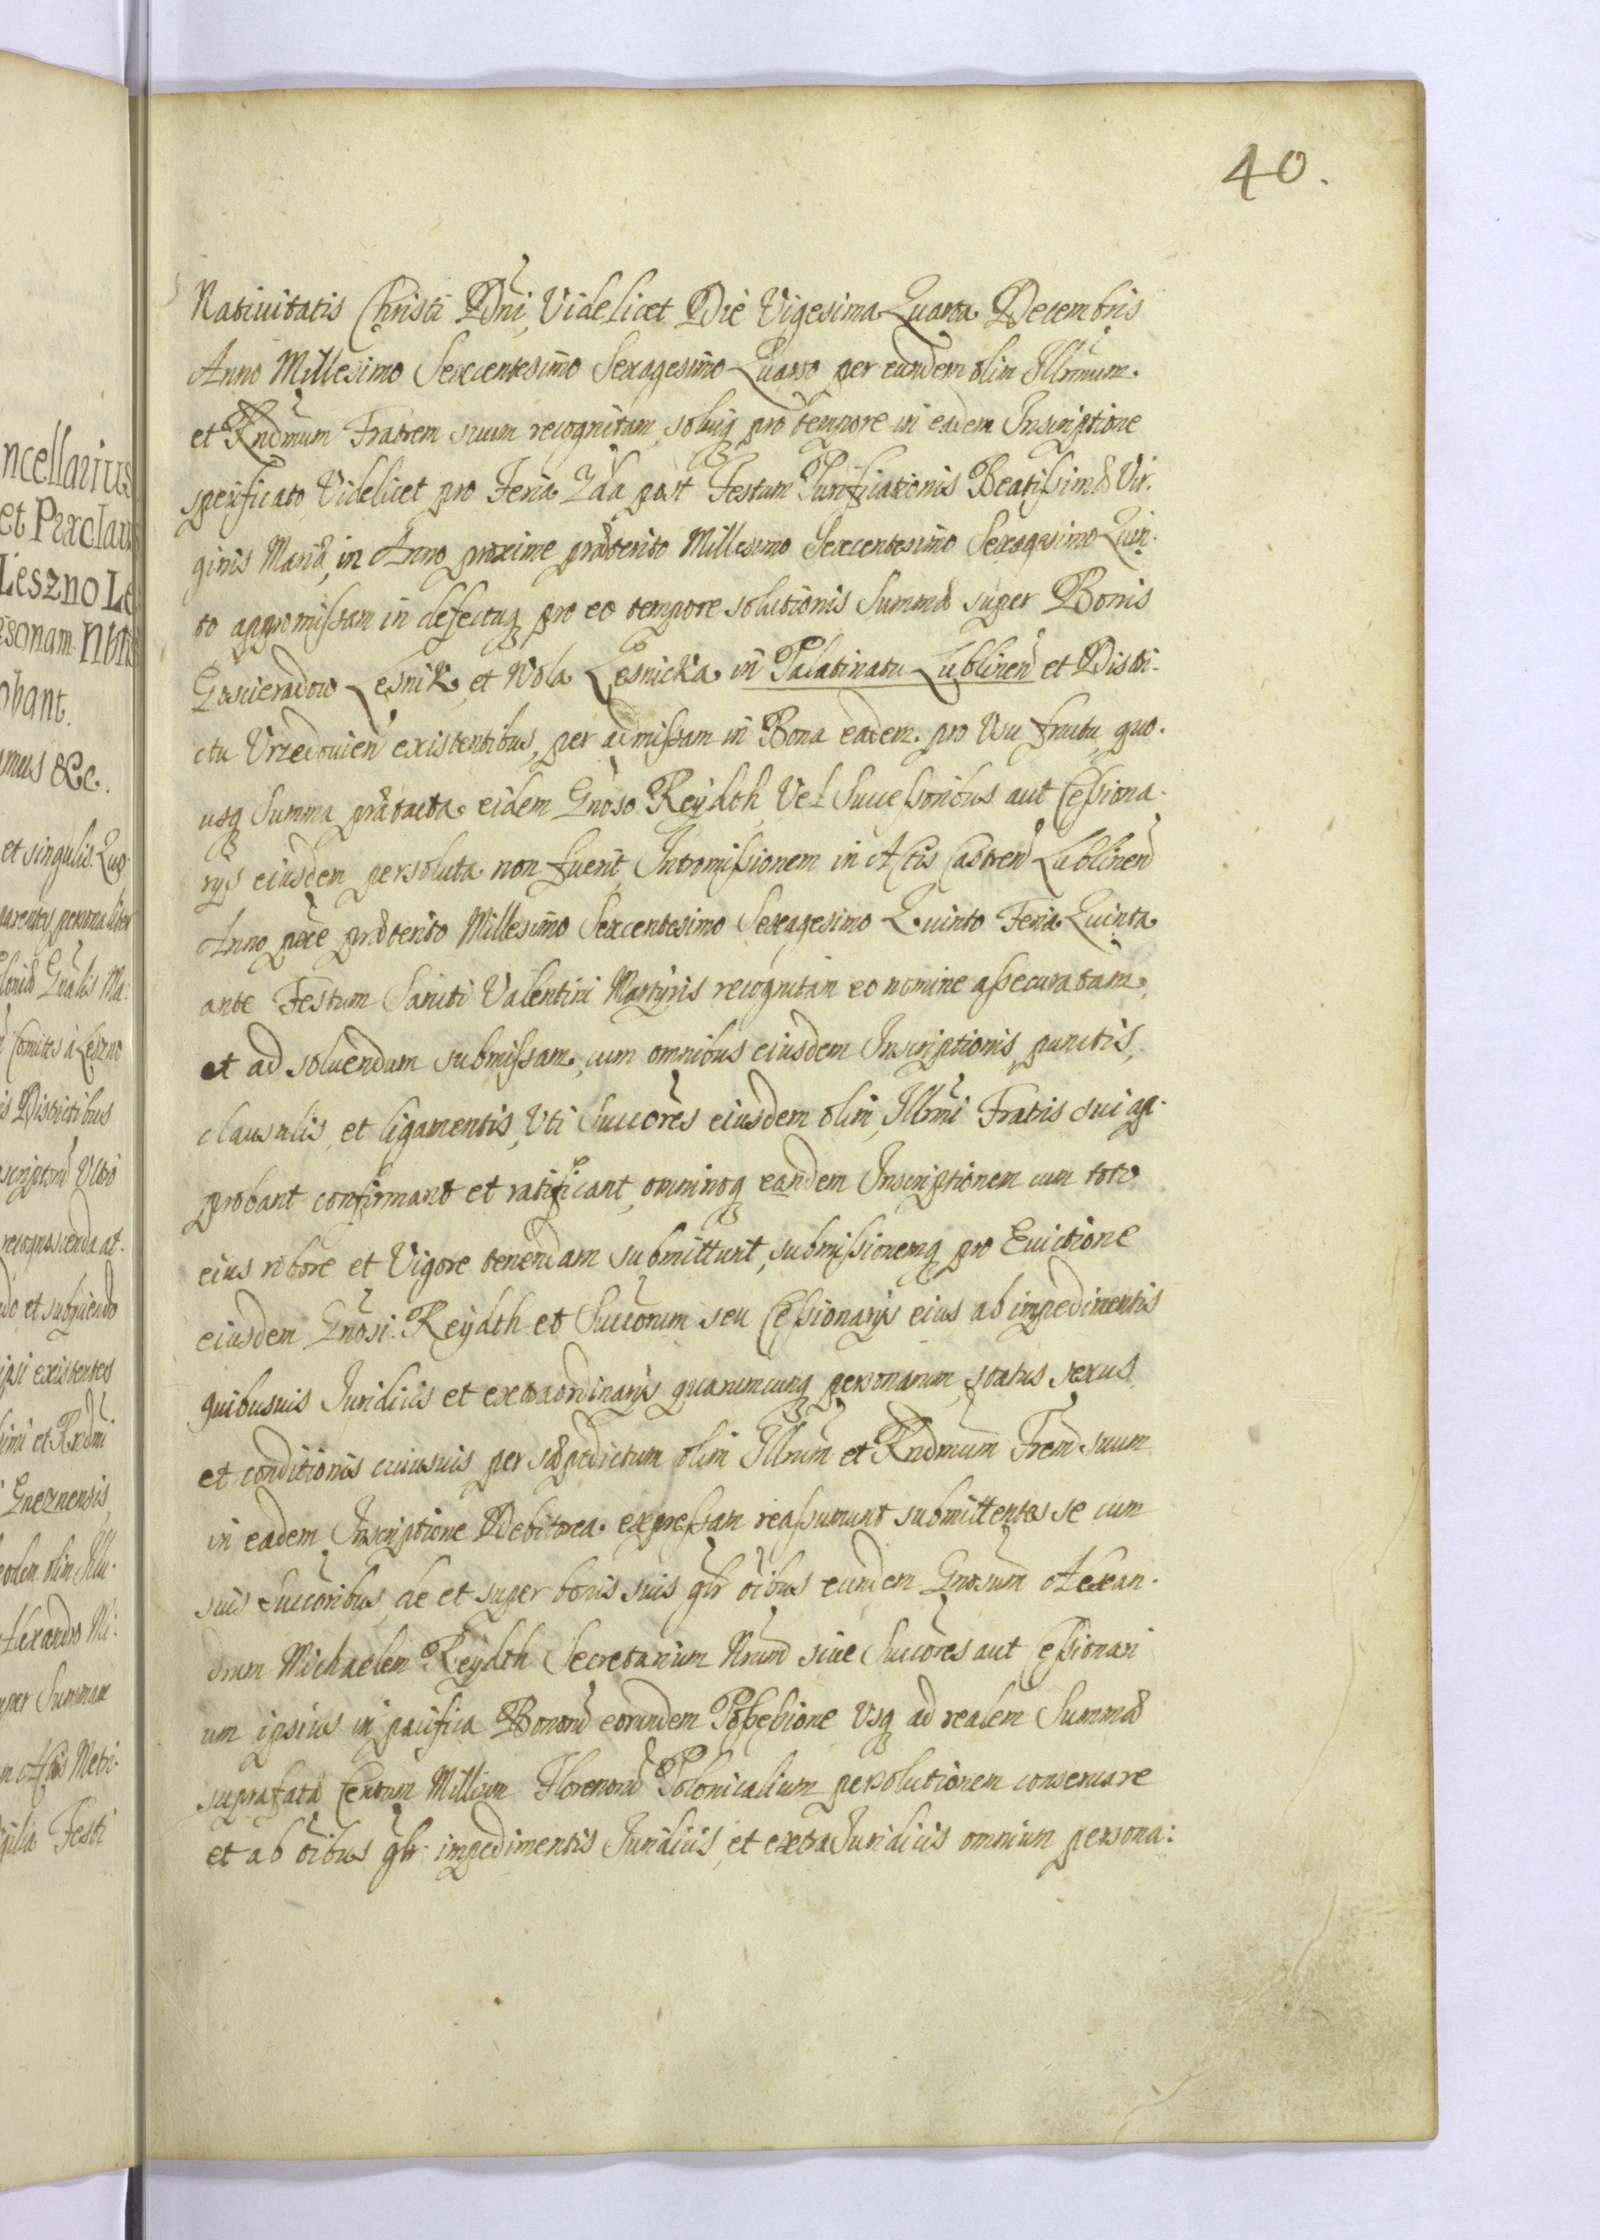 40.
Nativitatis Christi Dni, Videlicet Die Vigesima Quarta Decembris
Anno Millesimo Sexcentesimo Sexagesimo Quarto per eundem olim Illrmum
et Rndmum Fratrem suum recognitam, soluiq pro tempore in eadem Inscriptione
specificato, Videlicet pro Feria 2da post Festum Purificationis Beatissimæ Vir-
ginis Mariæ, in Anno proxime præterito Millesimo Sexcentesimo Sexagesimo Quin-
to appromissam in defectuq pro eo tempore solutionis Summæ super Bonis
Gościeradow Leśnik, et Wola Leśnicka in Palatinatu Lublinen et Distri-
ctu Vrzedouien existentibus, per admissam in Bona eadem pro Vsu fructu, quo-
usq Summa prætacta eidem Gnoso Reijdth, Vel Successoribus aut Cessiona-
rijs eiusdem persoluta non fuerit, Intromissionem in Actis Castren Lublinen
Anno pxe præterito Millesimo Sexcentesimo Sexagesimo Quinto Feria Quinta
ante Festum Sancti Valentini Martyris recognitam eo nomine assecuratam,
et ad soluendam submissam, cum omnibus eiusdem Inscriptionis punctis,
clausulis, et ligamentis, Vti Succores eiusdem olim, Illrmi Fratris sui ap-
probant confirmant et ratificant, omninoq eandem Inscriptionem cum toto
eius robore et Vigore tenendam submittunt, submissionemq pro Euictione
eiusdem Gnosi Reijdth et Succorum seu Cessionarijs eius ab impedimentis
quibusuis Iuridicis et extraordinarijs quarumcunq personarum, status sexus
et conditionis cuiusuis per sæpedictum olim Illrum et Rndmum Frem suum
in eadem Inscriptione Debitorea expressam reassumunt submittentes se cum
suis Succoribus, de et super bonis suis glr oibus eundem Gnosum Alexan-
drum Michaelem Reijdth Secretarium Nrum siue Succores aut Cessionari
um ipsius in pacifica Bonor eorundem Possessione Vsq ad realem Summæ
suprafatæ Centum Millium Florenor Polonicalium persolutionem conseruare
et ab oibus glr impedimentis Iuridicis, et extraIuridicis omnium persona:
ncellarius
Leszno Le
sonam
obant.
mus &c.
et singulis. Quo
Comites à Leszno
is Districtibus
do et subijciendo
ipsi existentes
et Rndmi
Gneznensis
olim Illu-
per Summam
Actis Metri-
gilia Festi